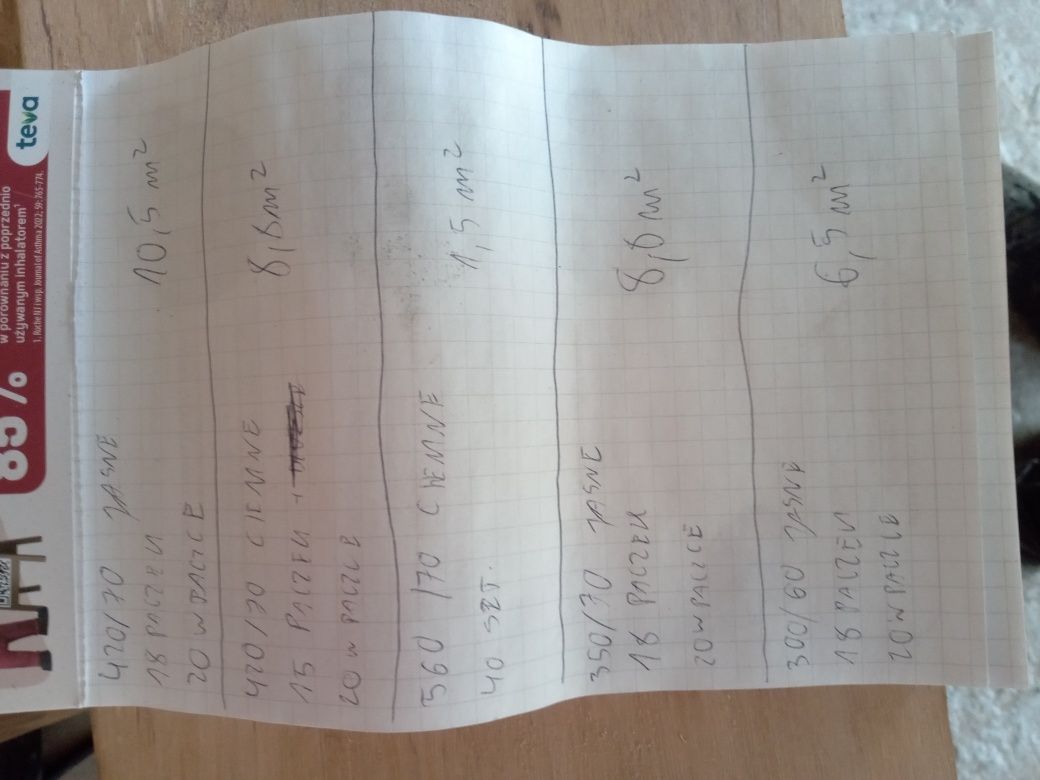 85%
w porównaniu z poprzednio
używanym inhalatorem¹
teva
420/70 JASNE
18 PACZEK
20 W PACZCE
10,5 m²
420/70 CIEMNE
15 PACZEK +
20 W PACZCE
8,8 m²
560/70 CIEMNE
40 SZT.
1,5 m²
350/70 JASNE
18 PACZEK
20 W PACZCE
8,8 m²
300/60 JASNE
18 PACZEK
20 W PACZCE
6,5 m²